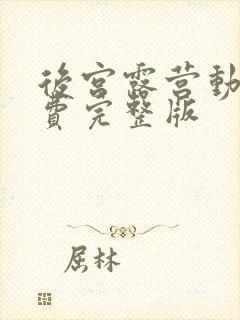 後宮露营動
費完整版
屈林